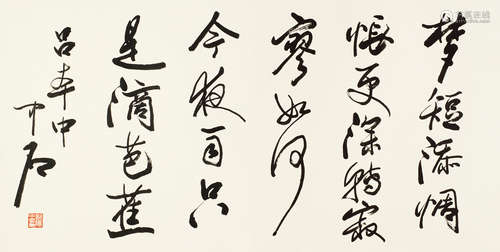 梦短添惆
怅更深转寂
寥如何
今夜雨只
是滴芭蕉
吕本中
中石